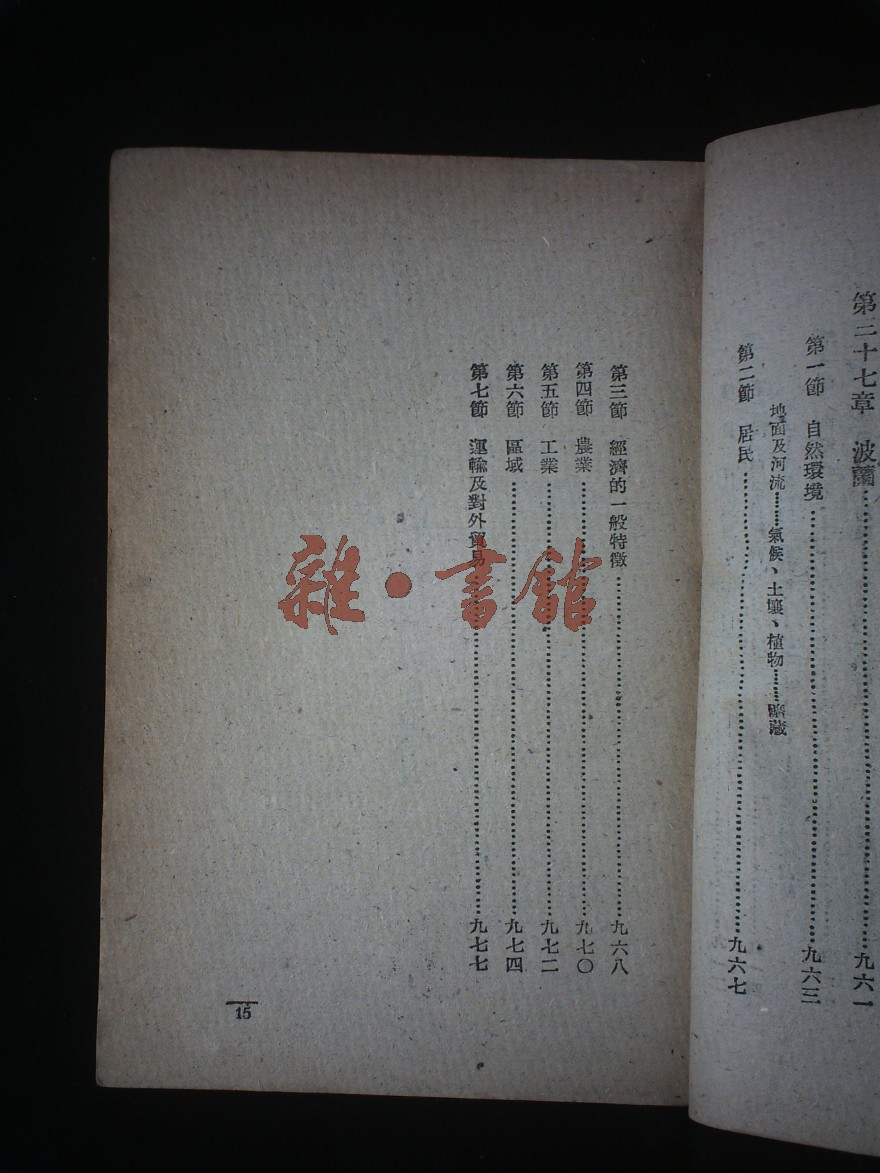 第三十七章 波蘭……九六一
第一節 自然環境……九六三
地面及河流……氣候、土壤、植物……礦藏
第二節 居民……九六七
第三節 經濟的一般特徵……九六八
第四節 農業……九七〇
第五節 工業……九七二
第六節 區域……九七四
第七節 運輸及對外貿易……九七七
15
雜·書館